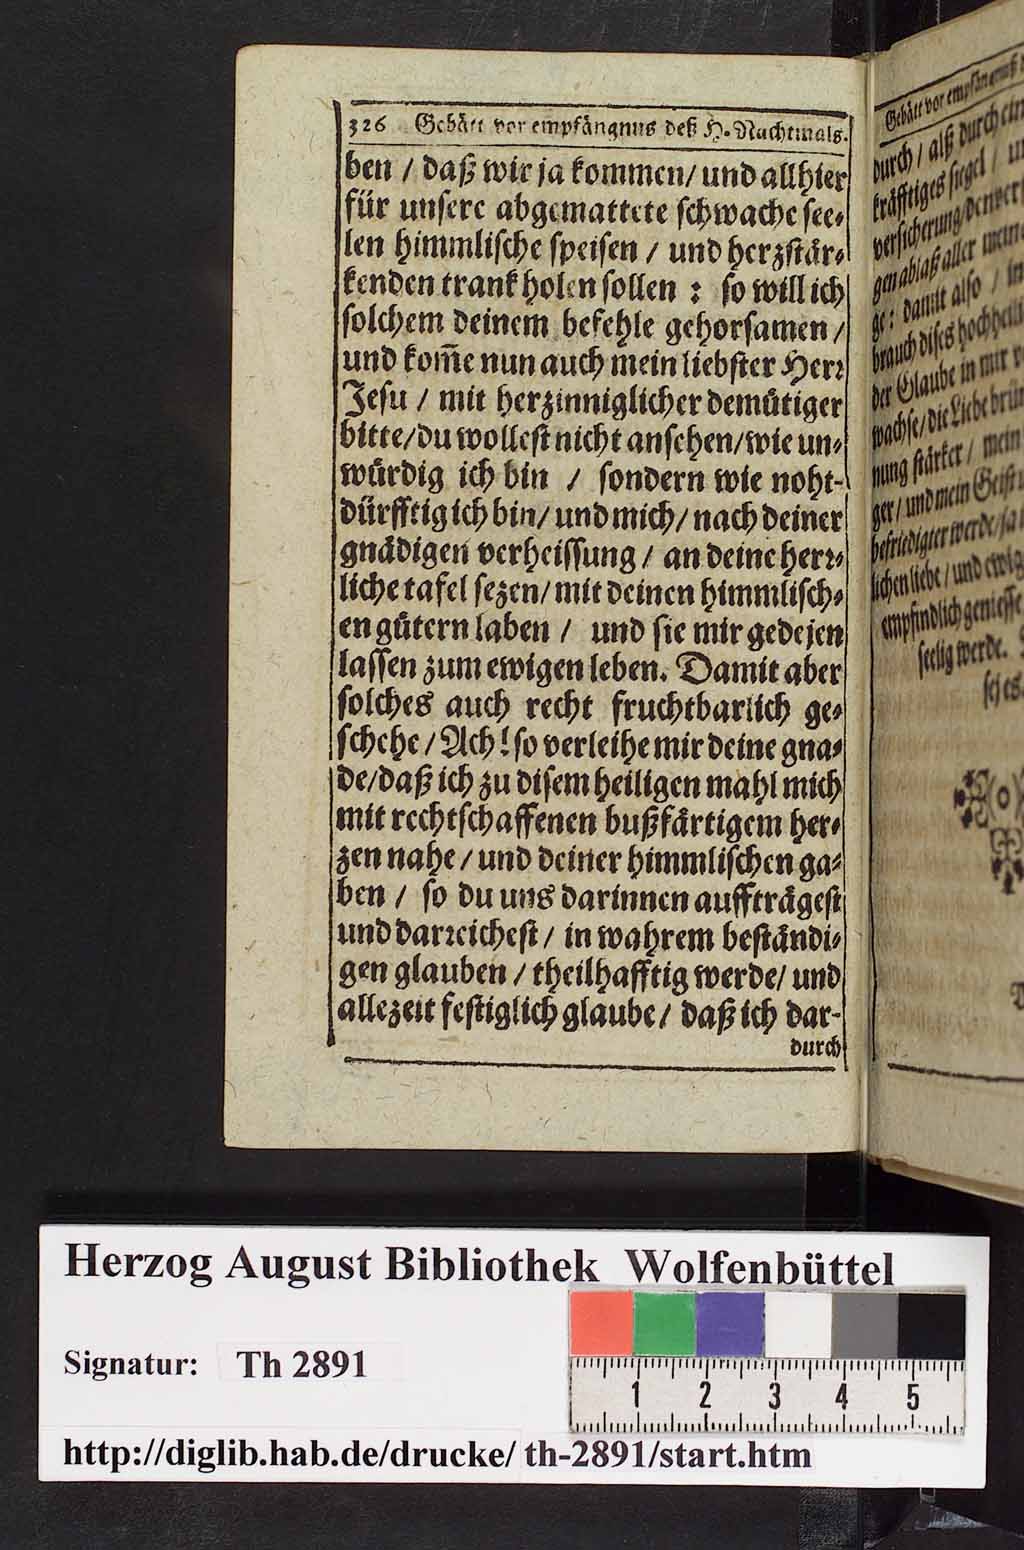 326 Gebätt vor empfängnus deß H. Nachtmals.
ben / daß wir ja kommen/ und allhier
für unsere abgemattete schwache see-
len himmlische speisen / und herzstär-
kenden trank holen sollen : so will ich
solchem deinem befehle gehorsamen /
und kom̃e nun auch mein liebster Herr
Jesu / mit herzinniglicher demütiger
bitte/du wollest nicht ansehen/wie un-
würdig ich bin / sondern wie noht-
dürfftig ich bin/ und mich/ nach deiner
gnädigen verheissung / an deine herr-
liche tafel sezen/ mit deinen himmlisch-
en gütern laben / und sie mir gedejen
lassen zum ewigen leben. Damit aber
solches auch recht fruchtbarlich ge-
schehe / Ach! so verleihe mir deine gna-
de/daß ich zu disem heiligen mahl mich
mit rechtschaffenen bußfärtigem her-
zen nahe / und deiner himmlischen ga-
ben / so du uns darinnen auffträgest
und darreichest / in wahrem beständi-
gen glauben / theilhafftig werde/ und
allezeit festiglich glaube / daß ich dar-
durch
Gebätt vor empfängnuß
durch / alß durch
kräfftiges siegel /
versicherung/
gen ablaß aller mein
ge : damit also / in
brauch dises
der Glaube in mir
wachse / die Liebe
nung stärker / mein
ger / und mein Geist
befriedigter werde/
lichen liebe / und ewig
empfindlich geniesse
seelig werde.
Herzog August Bibliothek Wolfenbüttel
Signatur: Th 2891
1 2 3 4 5
http://diglib.hab.de/drucke/ th-2891/start.htm